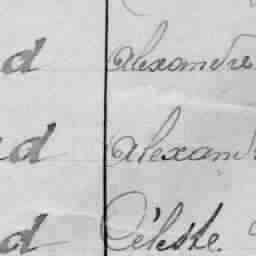 d Alexandre
d Alexand
d Céleste.